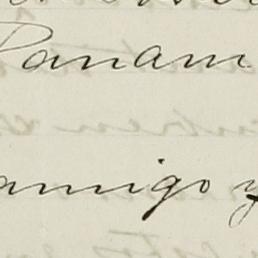 Panam
amigo y